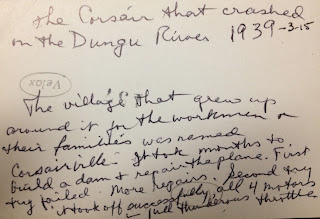 the Corsair that crashed
on the Dungu River 1939-3-15
Velox
The village that grew up
around it for the workmen &
their families was named
Corsairville. It took months to
build a dam & repair the plane. First
try failed. More repairs. Second try
it took off successfully, all 4 motors
full thunderous throttle